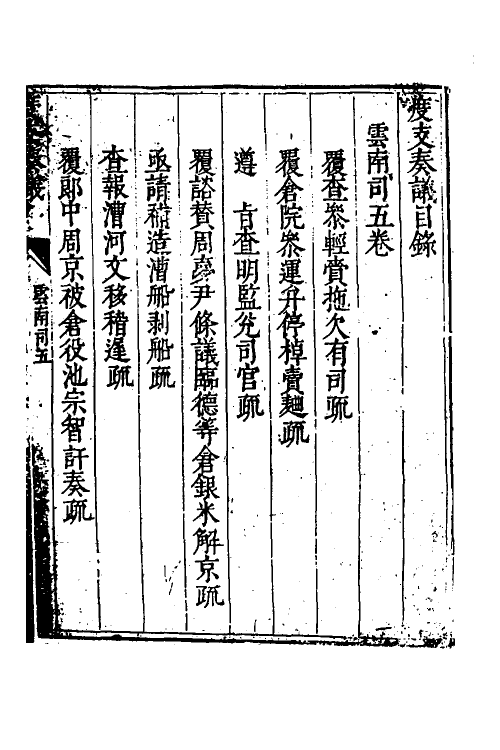 度支奏議目錄
雲南司五卷
覆查叅輕賫拖欠有司疏
覆倉院叅運弁停棹賣麺疏
遵 旨查明監兊司官疏
覆諮賛周彥尹條議臨德等倉銀米解京疏
亟請稽造漕船剥船疏
查報漕河文移稽遲疏
覆郎中周京被倉役池宗智訐奏疏
雲南司五